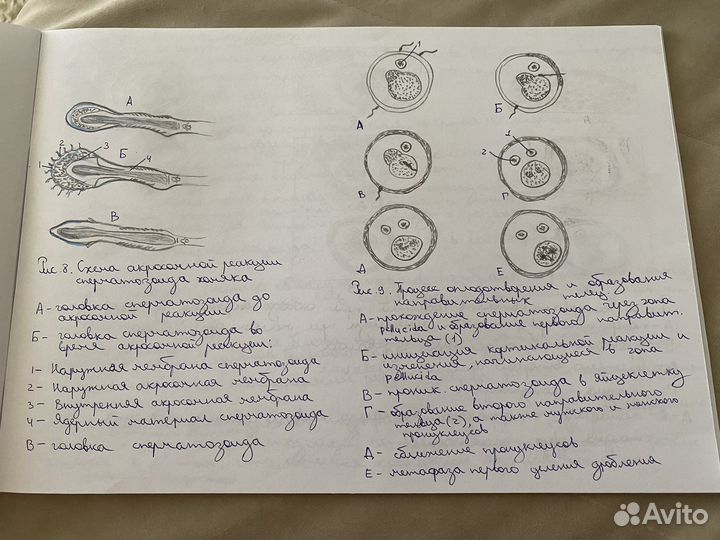 А
Б
1
2
3
4
В
Рис. 8. Схема акросомной реакции
сперматозоида хомяка
А - головка сперматозоида до
акросомной реакции
Б - головка сперматозоида во
время акросомной реакции:
1 - Наружная мембрана сперматозоида
2 - Наружная акросомная мембрана
3 - Внутренняя акросомная мембрана
4 - Ядерный материал сперматозоида
В - головка сперматозоида
1
А
Б
В
2
1
Г
Д
Е
Рис. 9. Процесс оплодотворения и образования
направительных телец
А - прохождение сперматозоида через зона
pellucida и образование первого направит.
тельца (1)
Б - инициация кортикальной реакции и
изменения, начинающиеся в зона
pellucida
В - проник. сперматозоида в яйцеклетку
Г - образование второго направительного
тельца (2), а также мужского и женского
пронуклеусов
Д - сближение пронуклеусов
Е - метафаза первого деления дробления
Avito